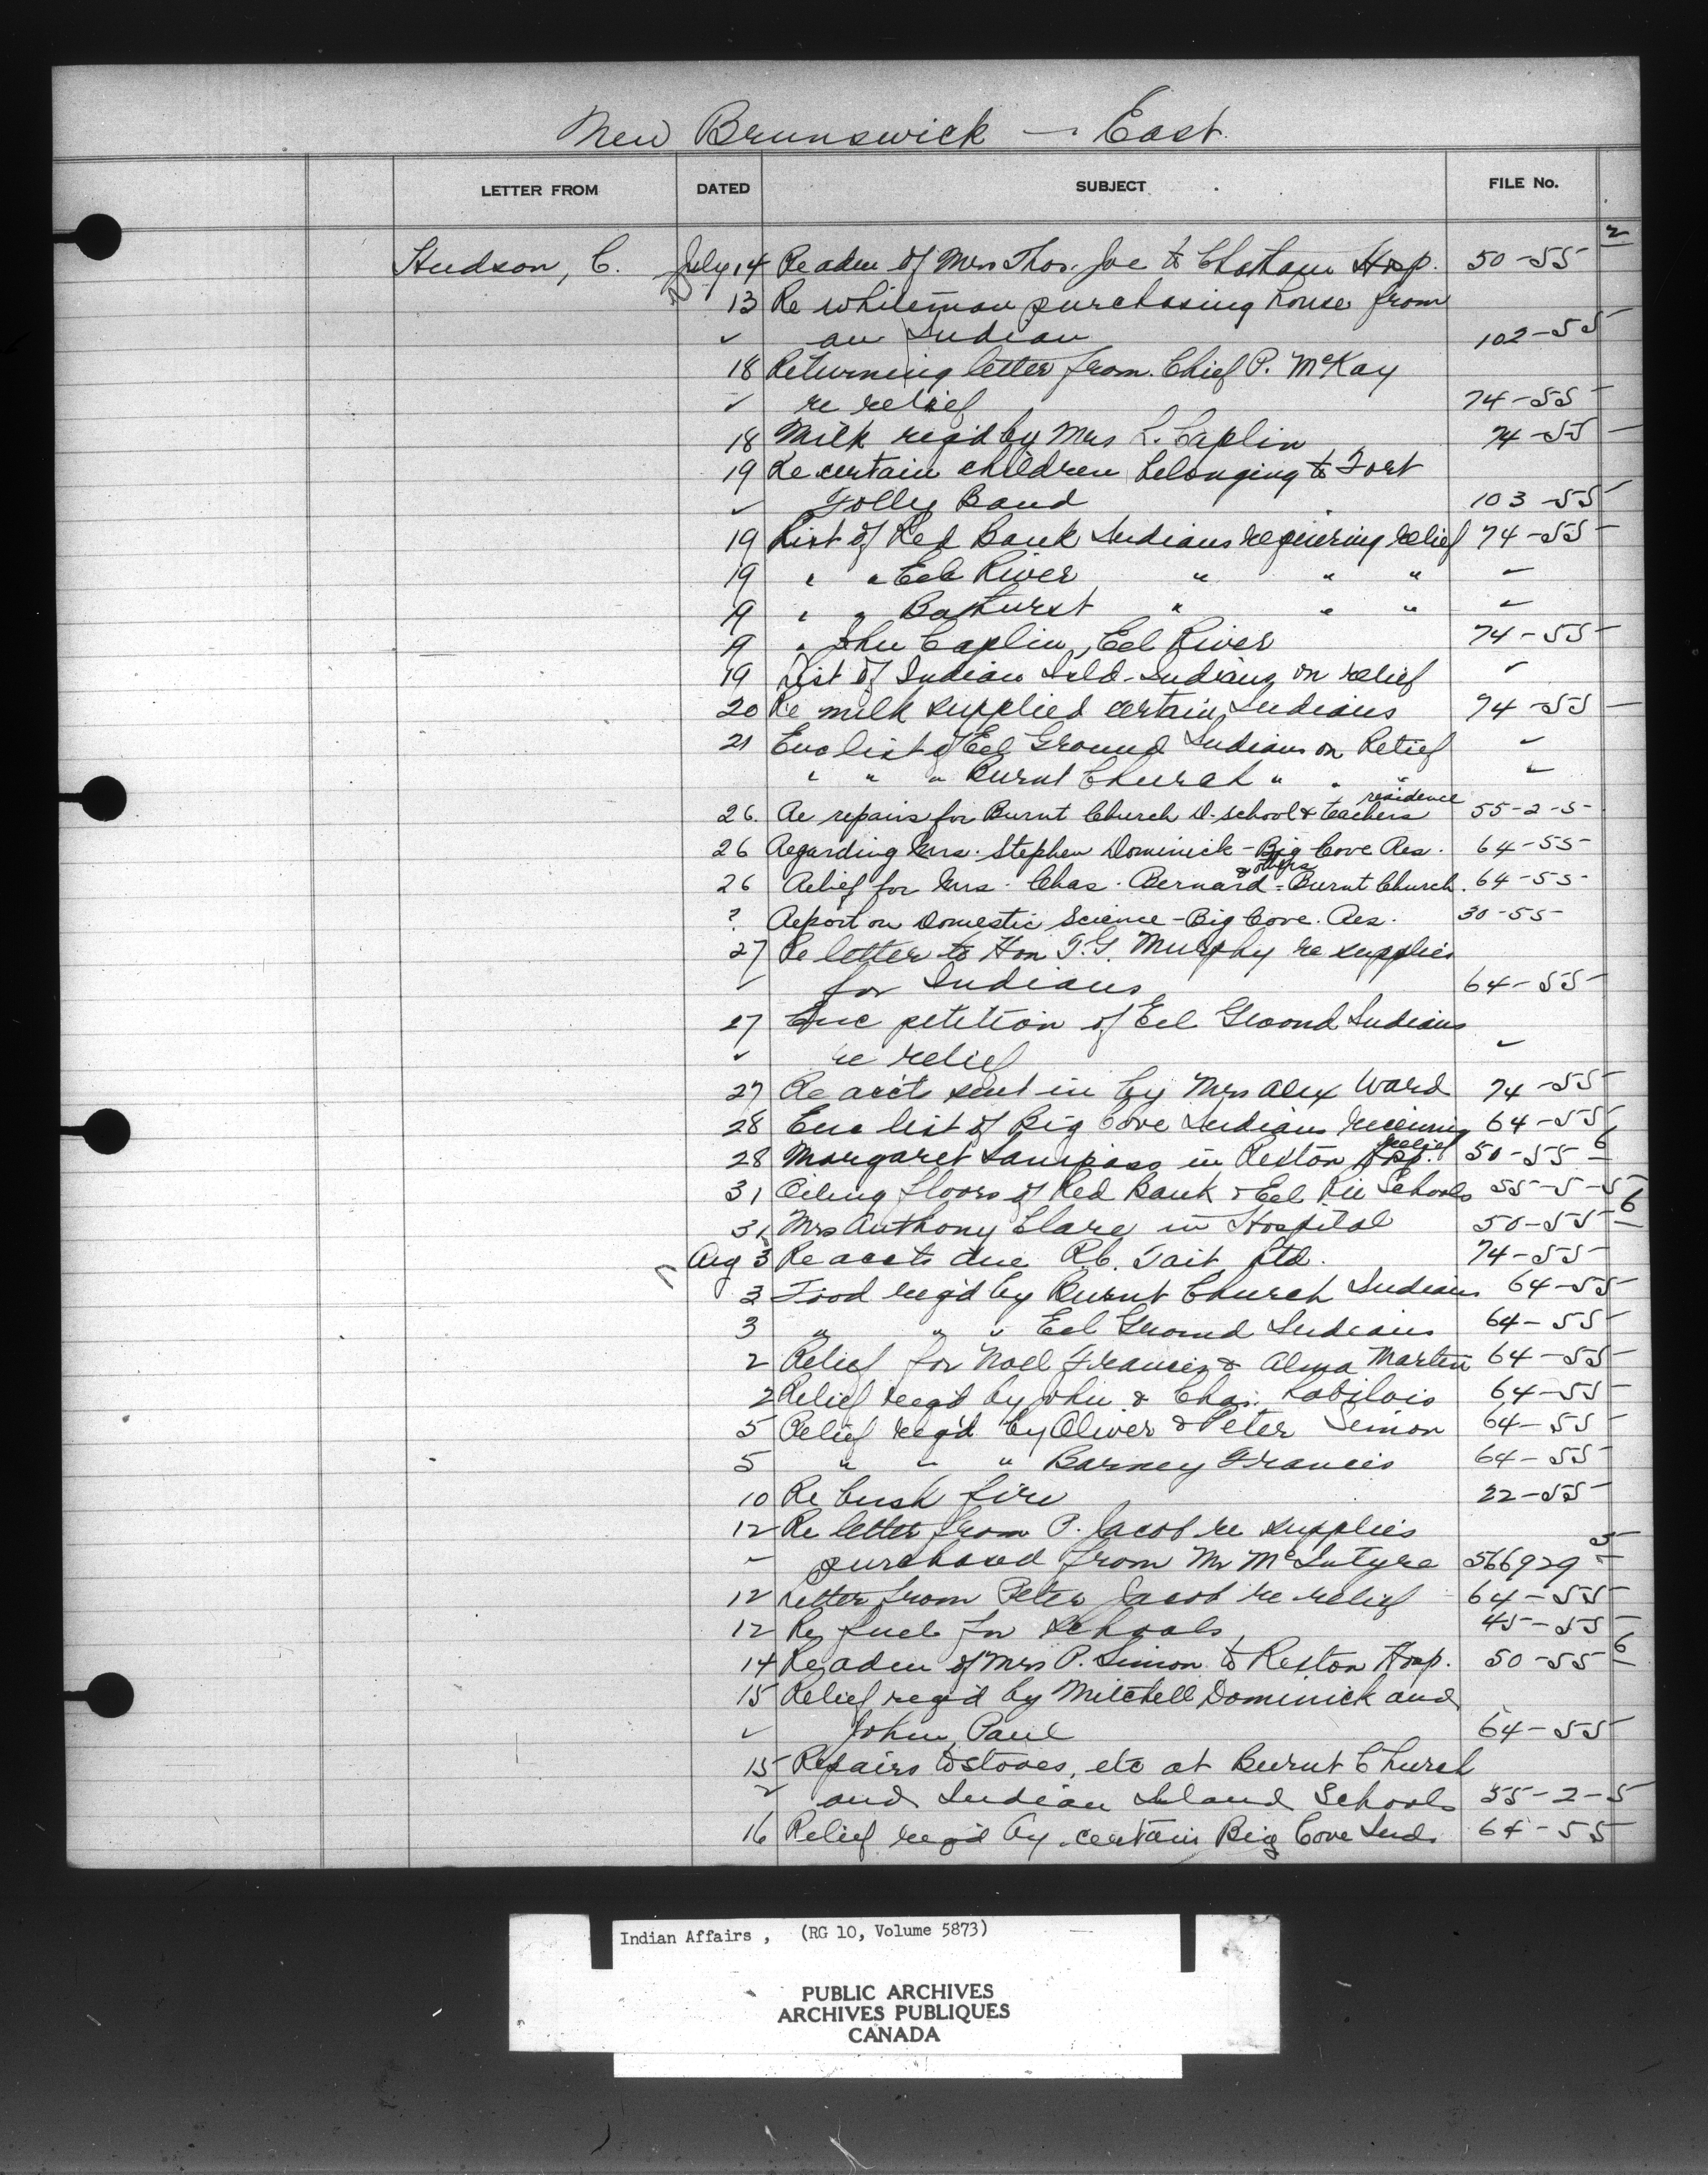 New Brunswick — East.
LETTER FROM DATED SUBJECT FILE No.
Hudson, C. July 14 Re adm of Mrs Thos. Joe to Chatham Hosp. 50-55 2
13 Re whiteman purchasing house from
✓ an Indian 102-55
18 Returning letter from Chief P. McKay
✓ re relief 74-55
18 Milk req'd by Mrs L. Caplin 74-55
19 Re certain children belonging to Fort
✓ Folly Band 103-55
19 List of Red Bank Indians requiring relief 74-55
19 " " Eel River " " " ✓
19 " " Bathurst " " " ✓
19 " John Caplin, Eel River 74-55
19 List of Indian Isld. Indians on relief ✓
20 Re milk supplied certain Indians 74-55
21 Enc list of Eel Ground Indians on Relief ✓
" " " Burnt Church " " " ✓
26. Re repairs for Burnt Church D. School & teachers residence 55-2-5
26 Regarding Mrs. Stephen Dominick - Big Cove Res. 64-55
26 Relief for Mrs. Chas. Bernard & others - Burnt Church. 64-55
? Report on Domestic Science - Big Cove. Res. 30-55
27 Re letter to Hon T.G. Murphy re supplies
✓ for Indians 64-55
27 Enc petition of Eel Ground Indians
✓ re relief ✓
27 Re acc'ts sent in by Mrs Alex Ward 74-55
28 Enc list of Big Cove Indians receiving relief 64-55
28 Margaret Sanipass in Rexton Hosp. 50-55 6
31 Oiling floors of Red Bank & Eel Riv Schools 55-5-5
31 Mrs Anthony Clare in Hospital 50-55 6
Aug 3 Re accts due Rb. Tait Ltd. 74-55
3 Food req'd by Burnt Church Indians 64-55
3 " " " Eel Ground Indians 64-55
2 Relief for Noel Francis & Alma Martin 64-55
2 Relief req'd by John & Chas. Labilois 64-55
5 Relief req'd by Oliver & Peter Simon 64-55
5 " " " Barney Francis 64-55
10 Re bush fire 22-55
12 Re letter from P. Jacob re supplies
✓ purchased from Mr McIntyre 566929 5
12 Letter from Peter Jacob re relief 64-55
12 Re fuel for schools 45-55
14 Re adm of Mrs P. Simon to Rexton Hosp. 50-55 6
15 Relief req'd by Mitchell Dominick and
✓ John Paul 64-55
15 Repairs to stoves, etc at Burnt Church
✓ and Indian Island Schools 55-2-5
16 Relief req'd by certain Big Cove Inds 64-55
Indian Affairs, (RG 10, Volume 5873)
PUBLIC ARCHIVES
ARCHIVES PUBLIQUES
CANADA